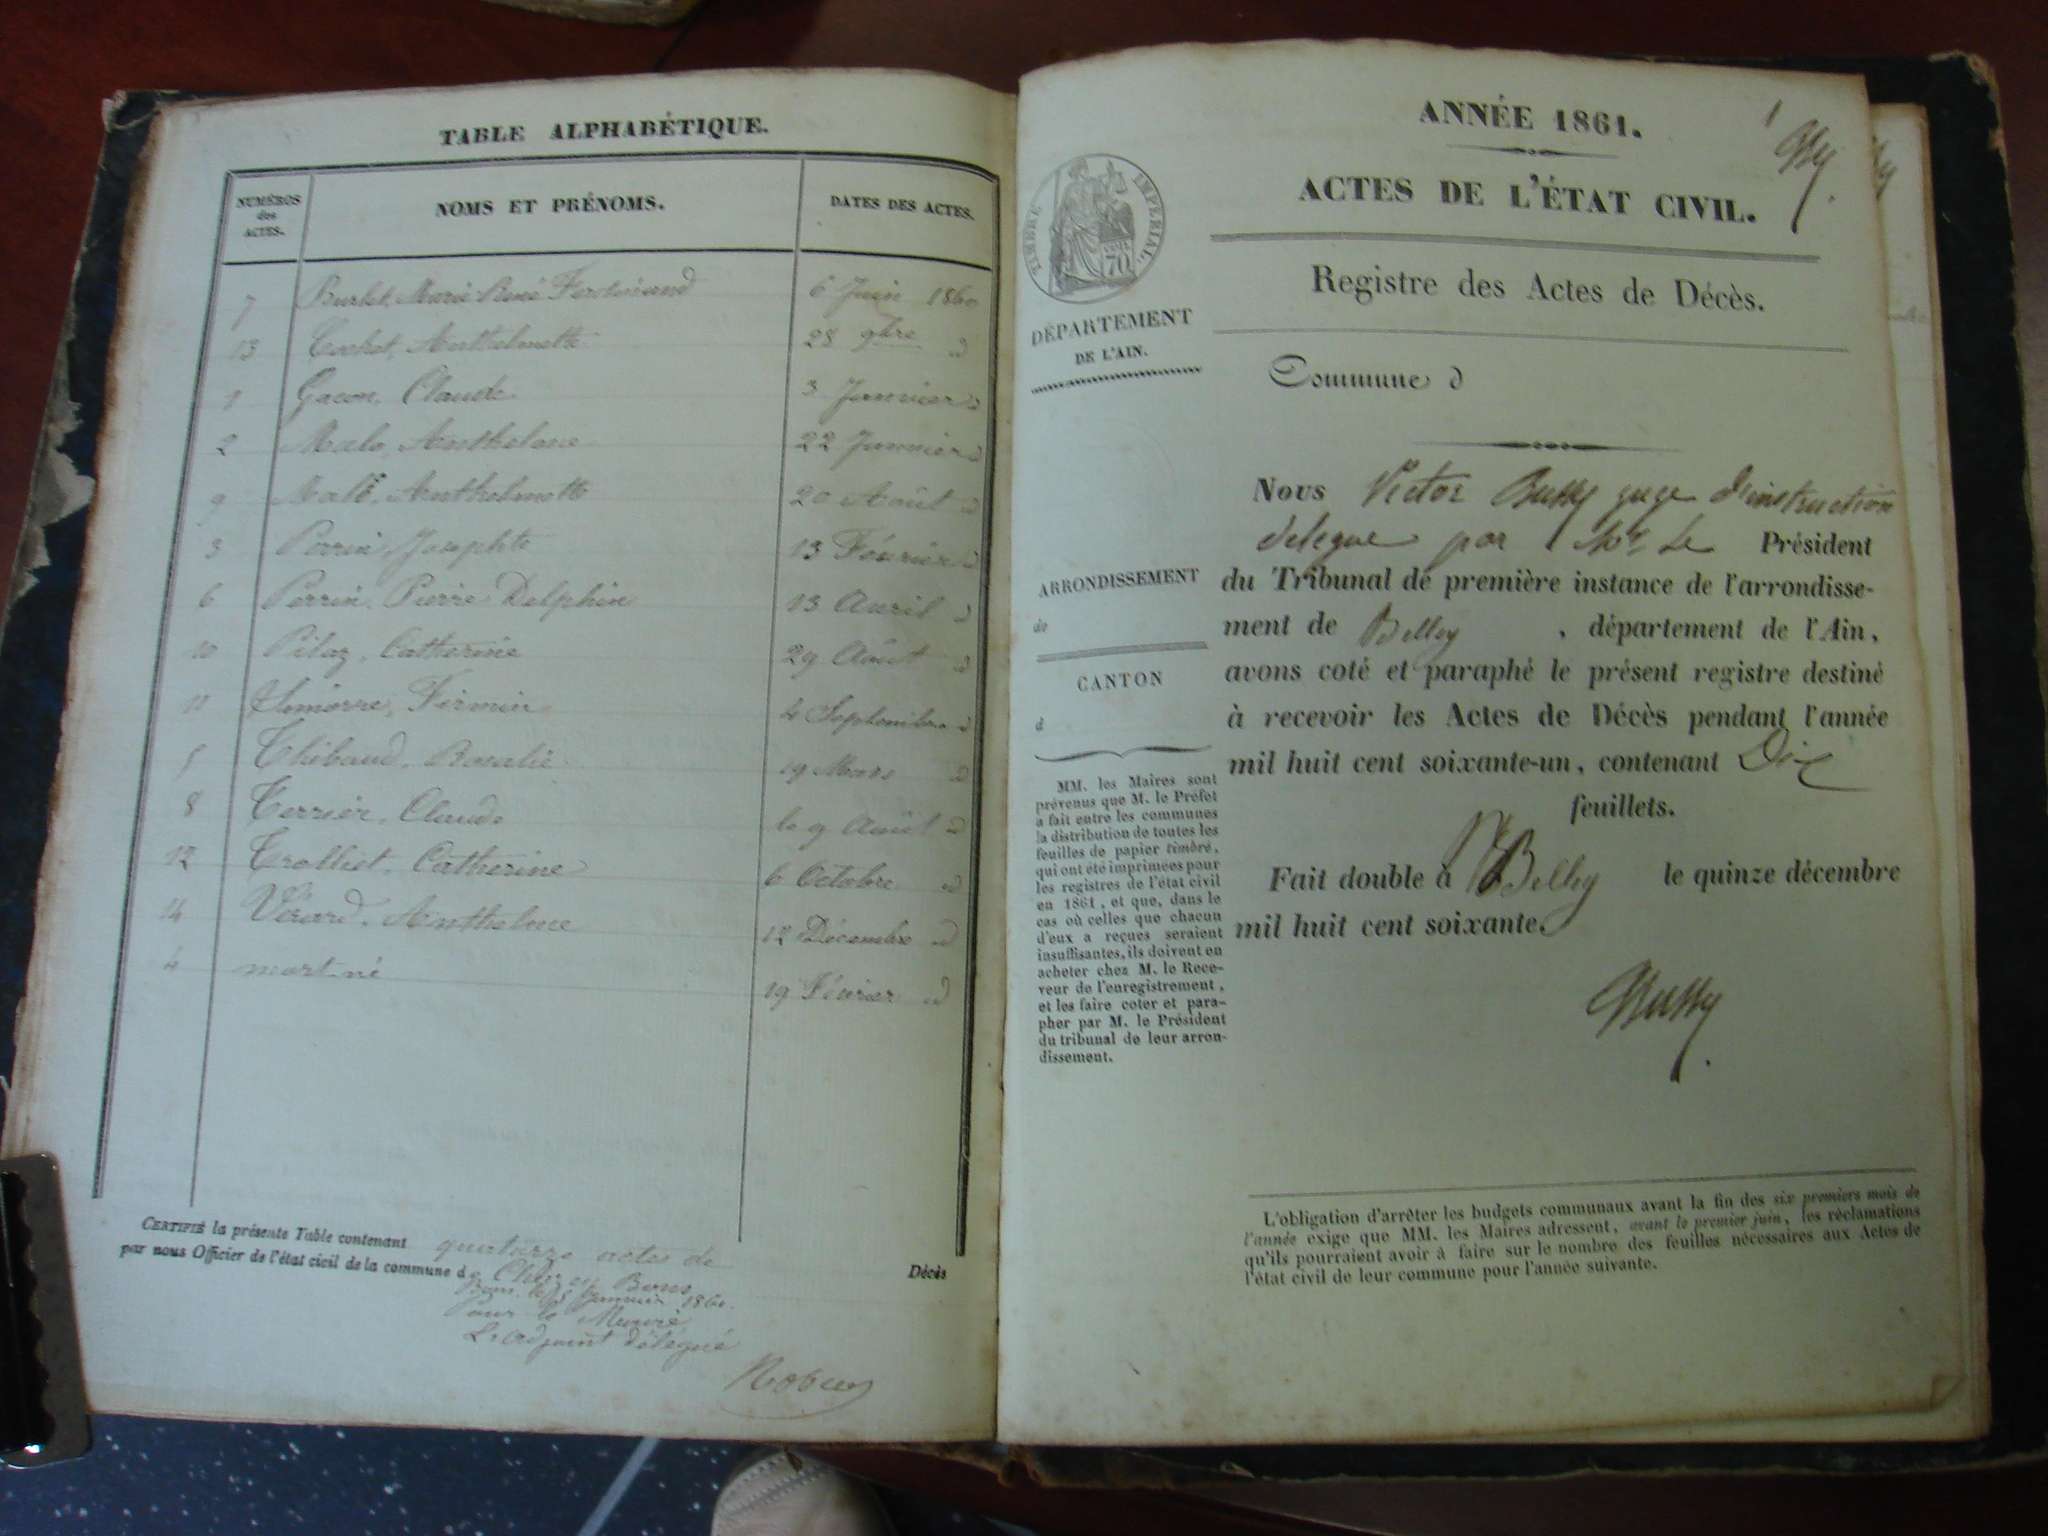 TABLE ALPHABÉTIQUE.
NUMÉROS des ACTES. NOMS ET PRÉNOMS. DATES DES ACTES.
7 Marie René Ferdinand 6 Juin 1860
13 Cochet, Anthelmette 28 9bre d
1 Gacon, Claude 3 Janvier d
2 Malo, Anthelme 22 Janvier d
9 Anthelmette 20 Août d
3 Perrin, Josephte 13 Février d
6 Perrin, Pierre Delphin 13 Avril d
10 Pilaz, Catherine 29 Août d
11 Firmin 4 Septembre d
5 Thibaud, Rosalie 19 Mars d
8 Terrier, Claude le 9 Août d
12 Trolliet, Catherine 6 Octobre d
14 Vérard, Anthelme 12 Décembre d
4 mort-né 19 Février d
CERTIFIÉ la présente Table contenant quatorze actes de Décès
par nous Officier de l'état civil de la commune de Chazey Bons
Bons, le Janvier 1861.
Pour le Maire
L'adjoint délégué
1
ANNÉE 1861.
ACTES DE L'ÉTAT CIVIL.
TIMBRE IMPÉRIAL.
70
Registre des Actes de Décès.
DÉPARTEMENT
DE L'AIN.
Commune d
ARRONDISSEMENT
de
CANTON
d
MM. les Maires sont
prévenus que M. le Préfet
a fait entre les communes
la distribution de toutes les
feuilles de papier timbré,
qui ont été imprimées pour
les registres de l'état civil
en 1861, et que, dans le
cas où celles que chacun
d'eux a reçues seraient
insuffisantes, ils doivent en
acheter chez M. le Rece-
veur de l'enregistrement,
et les faire coter et para-
pher par M. le Président
du tribunal de leur arron-
dissement.
Nous Victor Bussy juge d'instruction
délégué par Mr Le Président
du Tribunal de première instance de l'arrondisse-
ment de Belley, département de l'Ain,
avons coté et paraphé le présent registre destiné
à recevoir les Actes de Décès pendant l'année
mil huit cent soixante-un, contenant Dix
feuillets.
Fait double à Belley le quinze décembre
mil huit cent soixante.
Bussy
L'obligation d'arrêter les budgets communaux avant la fin des six premiers mois de
l'année exige que MM. les Maires adressent, avant le premier juin, les réclamations
qu'ils pourraient avoir à faire sur le nombre des feuilles nécessaires aux Actes de
l'état civil de leur commune pour l'année suivante.